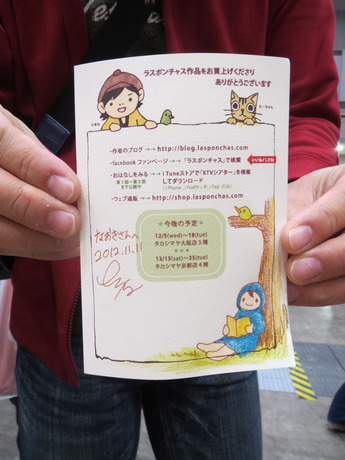 ラスポンチャス作品をお買上げくださり
ありがとうございます
・作者のブログ→→http://blog.lasponchas.com
・facebook ファンページ→→「ラスポンチャス」で検索
いいね!してね
・おはなしをみる→→i Tuneストアで「KTVシアター」を検索
してダウンロード
・ウェブ通販→→http://shop.lasponchas.com
＊今後の予定＊
12/5(wed)〜18(tue)
タカシマヤ大阪店5階
12/15(sat)〜25(tue)
タカシマヤ京都店4階
なおきさんへ
2012.11.11